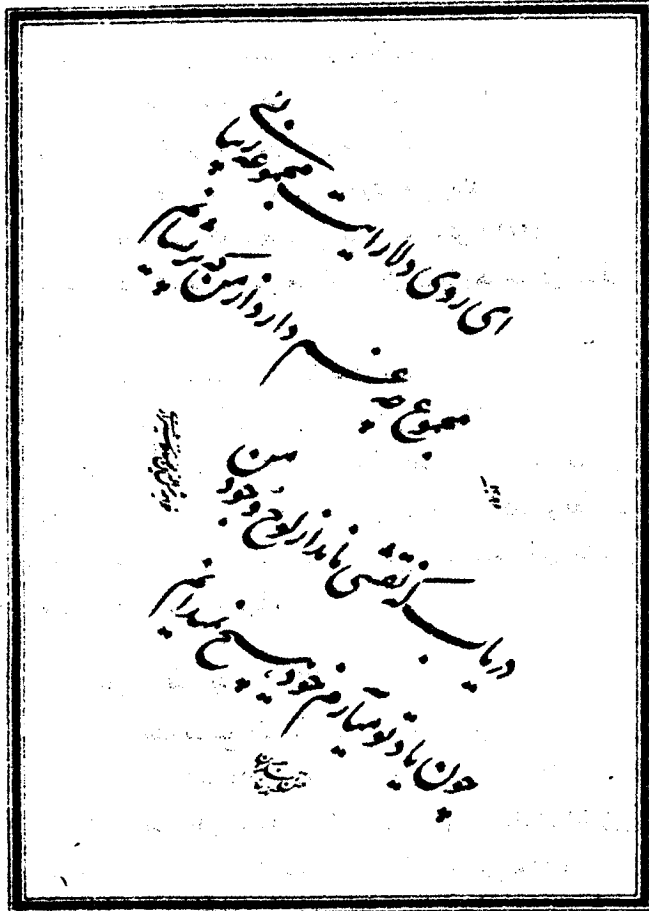 ای روی دلارایت مجموعه زیبائی
مجموع چه غم دارد از من که پریشانم
دریاب که نقشی ماند از لوح وجود من
چون یاد تو میآرم خود هیچ نمیدانم